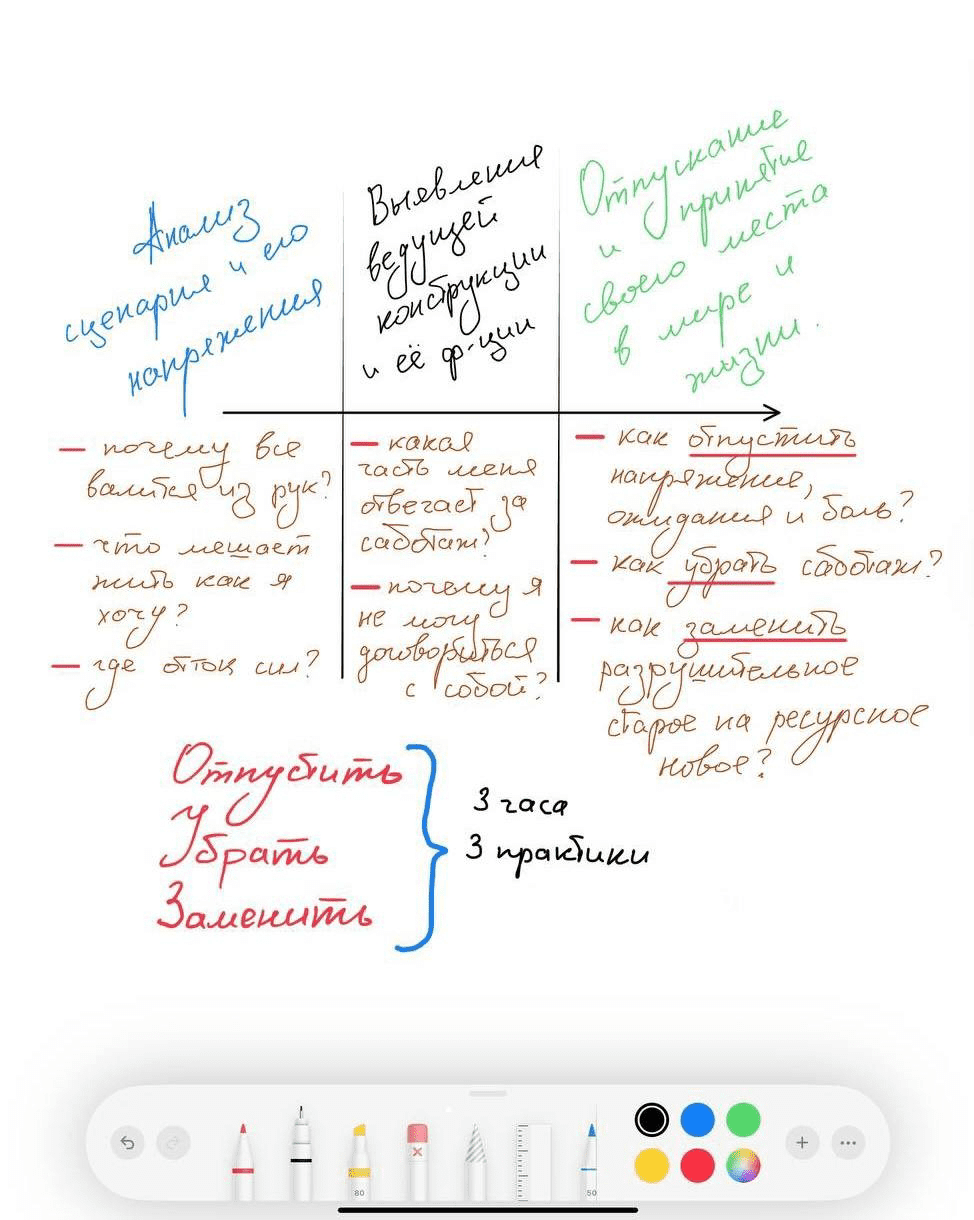 Анализ
сценария и его
напряжения
Выявление
ведущей
конструкции
и её ф-ции
Отпускание
и принятие
своего места
в мире и
жизни.
— почему все
валится из рук?
— что мешает
жить как я
хочу?
— где отток сил?
— какая
часть меня
отвечает за
саботаж?
— почему я
не могу
договориться
с собой?
— как отпустить
напряжения,
ожидания и боль?
— как убрать саботаж?
— как заменить
разрушительное
старое на ресурсное
новое?
Отпустить
Убрать
Заменить
3 часа
3 практики
80
50